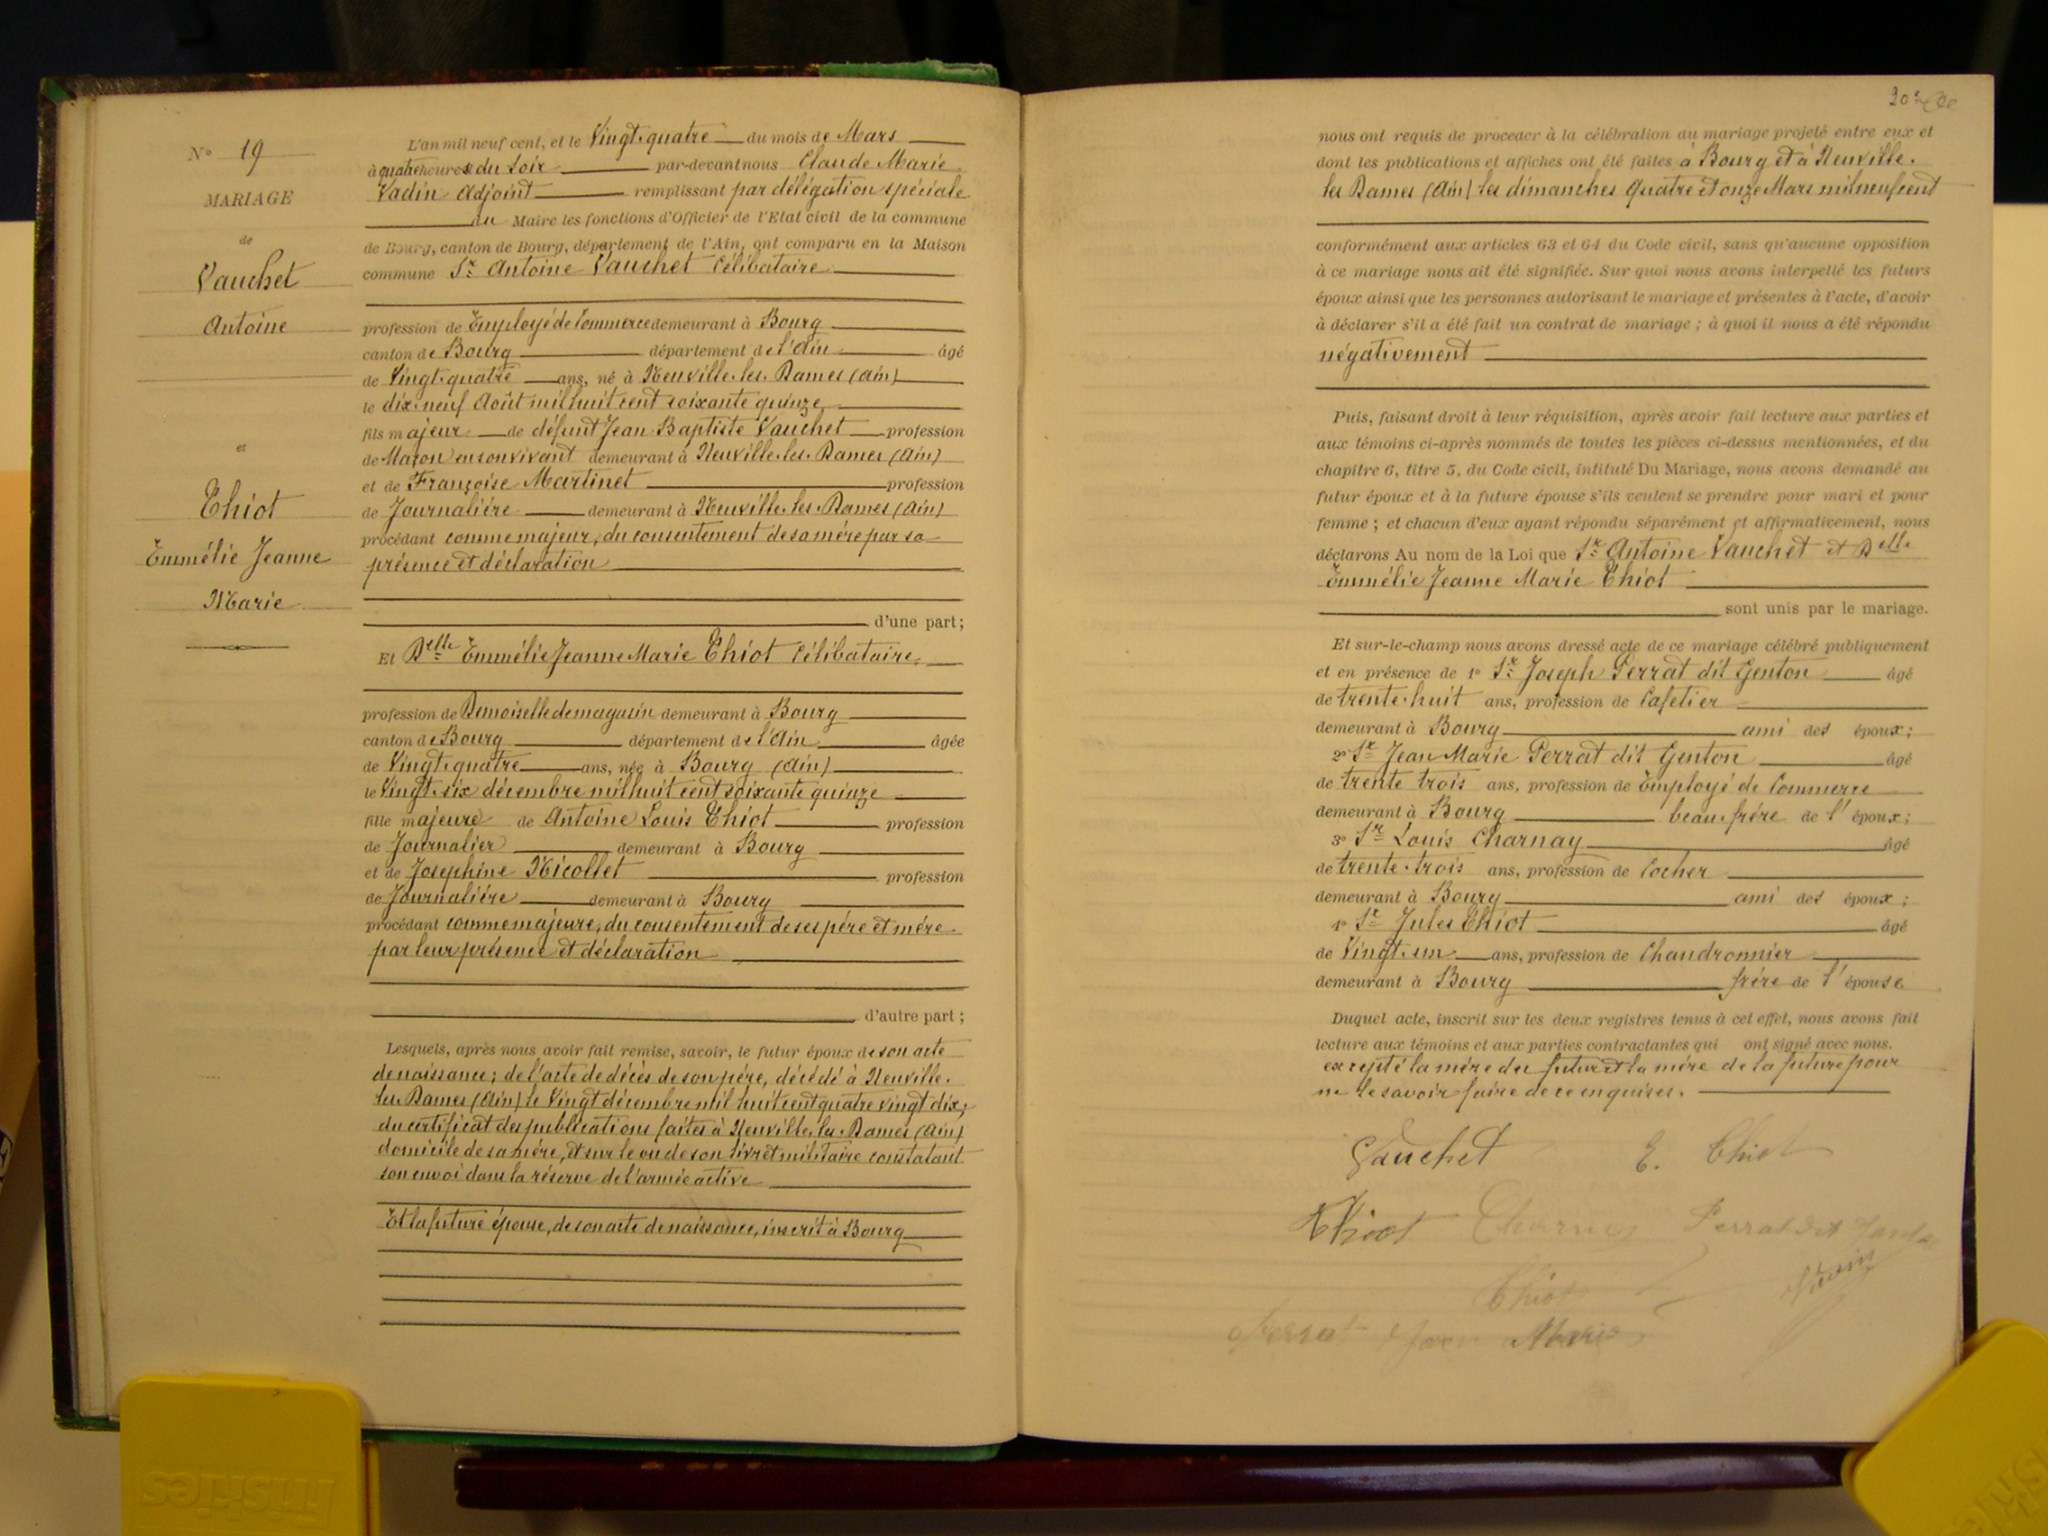 N° 19
MARIAGE
de
Vauchet
Antoine
et
Thiot
Emmélie Jeanne
Marie
L'an mil neuf cent, et le Vingt-quatre du mois de Mars
à quatre heures du soir par-devant nous Claude Marie
Vadin Adjoint remplissant par délégation spéciale
du Maire les fonctions d'Officier de l'Etat civil de la commune
de Bourg, canton de Bourg, département de l'Ain, ont comparu en la Maison
commune Sr Antoine Vauchet célibataire
profession de Employé de Commerce demeurant à Bourg
canton de Bourg département de l'Ain âgé
de Vingt-quatre ans, né à Neuville-les-Dames (Ain)
le dix-neuf Août mil huit cent soixante quinze
fils majeur de défunt Jean Baptiste Vauchet profession
de Maçon en son vivant demeurant à Neuville-les-Dames (Ain)
et de Françoise Martinet profession
de Journalière demeurant à Neuville-les-Dames (Ain)
procédant comme majeur, du consentement de sa mère par sa
présence et déclaration
d'une part;
Et Delle Emmélie Jeanne Marie Thiot célibataire,
profession de Demoiselle de magasin demeurant à Bourg
canton de Bourg département de l'Ain âgée
de Vingt-quatre ans, née à Bourg (Ain)
le Vingt-six décembre mil huit cent soixante quinze
fille majeure de Antoine Louis Thiot profession
de Journalier demeurant à Bourg
et de Josephine Nicollet profession
de Journalière demeurant à Bourg
procédant comme majeure, du consentement de ses père et mère
par leur présence et déclaration
d'autre part;
Lesquels, après nous avoir fait remise, savoir, le futur époux de son acte
de naissance; de l'acte de décès de son père, décédé à Neuville-
les-Dames (Ain) le Vingt décembre mil huit cent quatre vingt dix;
du certificat des publications faites à Neuville-les-Dames (Ain)
domicile de sa mère, et sur le vu de son livret militaire constatant
son envoi dans la réserve de l'armée active
Et la future épouse, de son acte de naissance, inscrit à Bourg
20
nous ont requis de procéder à la célébration du mariage projeté entre eux et
dont les publications et affiches ont été faites à Bourg et à Neuville-
les Dames (Ain) les dimanches quatre et onze Mars mil neuf cent
conformément aux articles 63 et 64 du Code civil, sans qu'aucune opposition
à ce mariage nous ait été signifiée. Sur quoi nous avons interpellé les futurs
époux ainsi que les personnes autorisant le mariage et présentes à l'acte, d'avoir
à déclarer s'il a été fait un contrat de mariage; à quoi il nous a été répondu
négativement
Puis, faisant droit à leur réquisition, après avoir fait lecture aux parties et
aux témoins ci-après nommés de toutes les pièces ci-dessus mentionnées, et du
chapitre 6, titre 5, du Code civil, intitulé Du Mariage, nous avons demandé au
futur époux et à la future épouse s'ils veulent se prendre pour mari et pour
femme; et chacun d'eux ayant répondu séparément et affirmativement, nous
déclarons Au nom de la Loi que Sr Antoine Vauchet et Delle
Emmélie Jeanne Marie Thiot
sont unis par le mariage.
Et sur-le-champ nous avons dressé acte de ce mariage célébré publiquement
et en présence de 1° Sr Joseph Perrat dit Genton âgé
de trente-huit ans, profession de Cafetier
demeurant à Bourg ami des époux;
2° Sr Jean Marie Perrat dit Genton âgé
de trente trois ans, profession de Employé de Commerce
demeurant à Bourg beau-frère de l'époux;
3° Sr Louis Charnay âgé
de trente-trois ans, profession de Cocher
demeurant à Bourg ami des époux;
4° Sr Jules Thiot âgé
de Vingt-un ans, profession de Chaudronnier
demeurant à Bourg frère de l'épouse
Duquel acte, inscrit sur les deux registres tenus à cet effet, nous avons fait
lecture aux témoins et aux parties contractantes qui ont signé avec nous.
excepté la mère du futur et la mère de la future pour
ne le savoir faire de ce enquises.
Vauchet E. Thiot
Thiot Charnay Perrat dit Genton
Thiot Vadin
Perrat Jean Marie